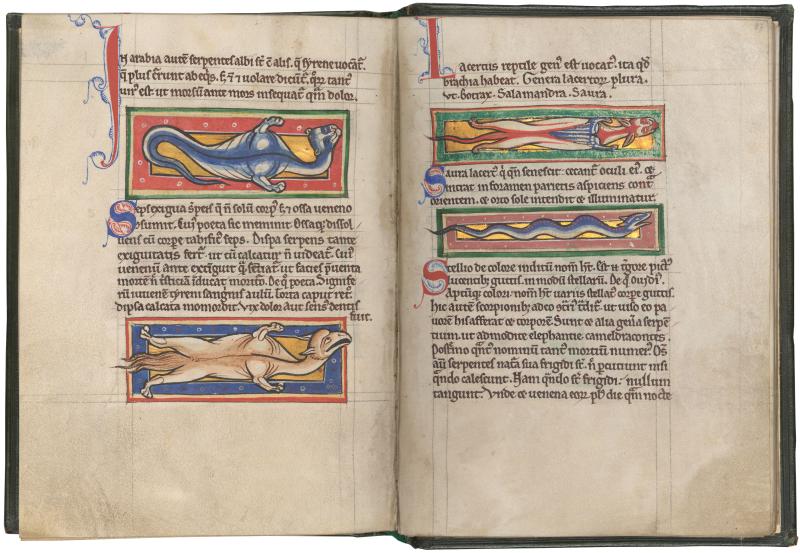 In arabia autē serpentes albi st̄ c̄ alis. q̄ syrene uocāt̄.
q̄ plus c̄runt ab eqs. s; ⁊ uolare dicūt̄. quoꝝ tant᾽
uir᾽ est ut morsū ante mors insequat̄ qͣm dolor.
Seps exigua s̄pens q̄ n̄ solū corp᾽ s; ⁊ ossa ueneno
sumit. Cui᾽ poeta sic meminit. Ossaq; dissol
uens cū corpe tabific᾽ seps. Dispa serpens tante
exiguitatis fert̄. ut cū calcatur n̄ uideat̄. cui᾽
uenenū ante extīguit q̄ sētiat̄. ut facies p̄uenta
morte n̄
De q̄ poeta. Signife
rū iuuenē tyreni sanguīs aulū. torta caput ret᾽
dipsa calcata momordit. Vix dolor aut sens᾽ dentis
fuit.
Lacertus reptile gen᾽ est uocat᾽. ita qd̄
brachia habeat. Genera lacertoꝝ plura.
Vt. botrax. Salamandra. Saura.
Saura lacert᾽ q̄ qn̄ senescit. cecant̄ oculi ei᾽. ⁊
intrat in foramen parietis aspiciens cont̄
orientem. ⁊ orto sole intendit ⁊ illuminatur.
Stellio de colore inditū nom̄ ht̄. Est ⁊ t̄gore pict᾽
lucentib; guttis. in modū stellarū. De q̄ ouidi᾽.
Aptūq; colori nom̄ ht̄ uariis stellat᾽ corpe guttis.
hic autē scorpionib; adeo ut uiso eo pa
uorem his afferat ⁊ corporē. Sunt ⁊ alia gen̄a serpē
tium. ut admodite elephantie cameldracontis.
Postmo qͣnt᾽ nominū tant᾽ mortiū numer᾽. Om̄s
aū serpentes nat̄a sua frigidi st̄. n̄ pcutiunt nisi
qn̄do calescunt. Nam qn̄do st̄ frigidi. nullum
tangunt. Vnde ⁊ uenena eoꝝ pl᾽ die qͣm nocte